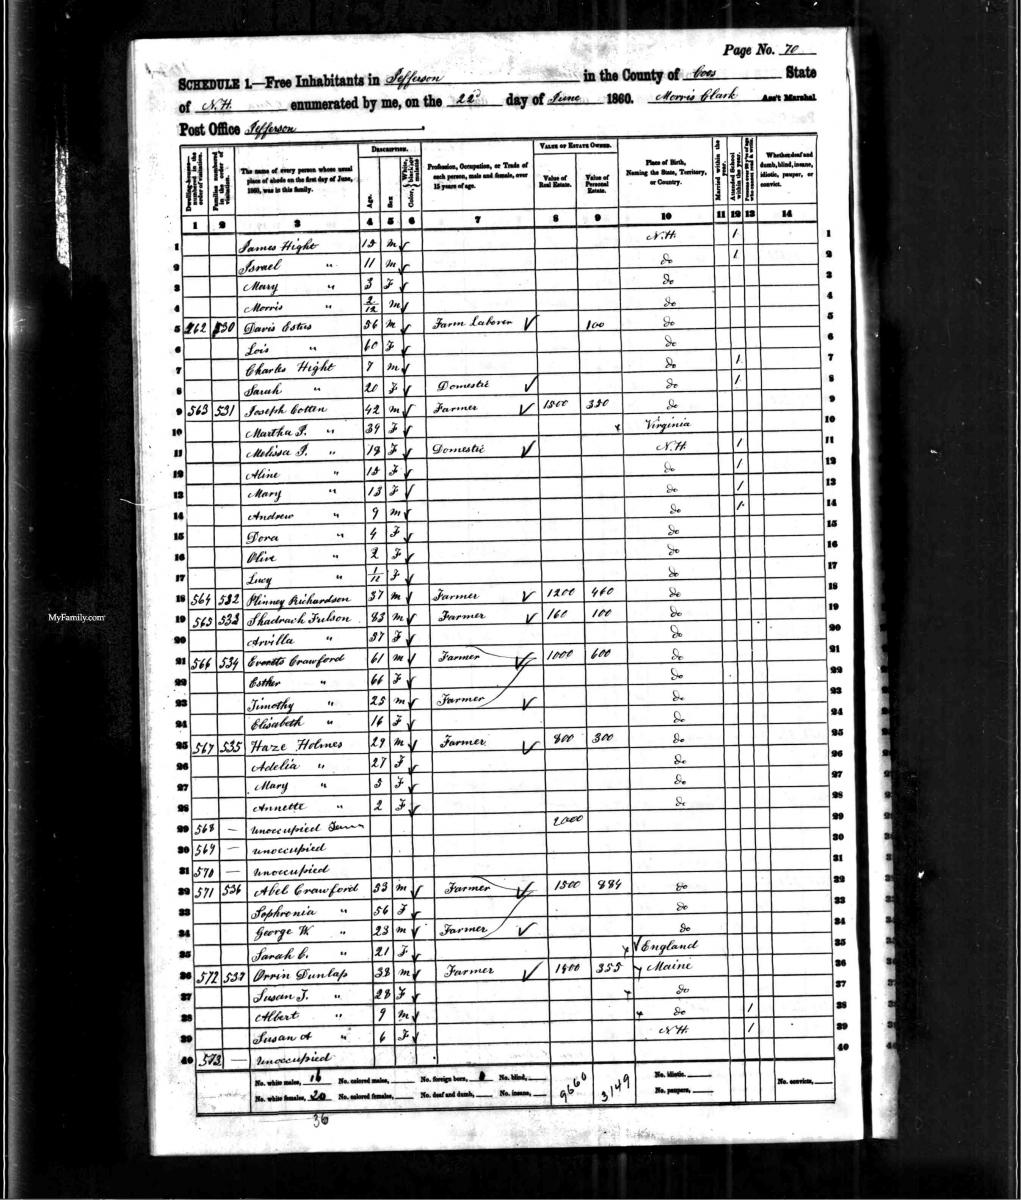 Page No. 70
SCHEDULE 1.—Free Inhabitants in Jefferson in the County of Coos State
of N.H. enumerated by me, on the 22d day of June 1860. Morris Clark Ass't Marshal
Post Office Jefferson
Dwelling-houses—numbered in the order of visitation.
Families numbered in the order of visitation.
The name of every person whose usual place of abode on the first day of June, 1860, was in this family.
DESCRIPTION.
Age.
Sex
Color,
Profession, Occupation, or Trade of each person, male and female, over 15 years of age.
VALUE OF ESTATE OWNED.
Value of Real Estate.
Value of Personal Estate.
Place of Birth, Naming the State, Territory, or Country.
Married within the year.
Attended School within the year.
Whether deaf and dumb, blind, insane, idiotic, pauper, or convict.
1 2 3 4 5 6 7 8 9 10 11 12 13 14
1 James Hight 15 m N.H. 1 1
2 Israel " 11 m do 1 2
3 Mary " 3 F do 3
4 Morris " 2/12 m do 4
5 562 530 Davis Estus 56 m Farm Laborer 100 do 5
6 Lois " 60 F do 6
7 Charles Hight 7 m do 1 7
8 Sarah " 20 F Domestic do 1 8
9 563 531 Joseph Cotten 42 m Farmer 1500 350 do 9
10 Martha P. " 39 F x Virginia 10
11 Melissa P. " 18 F Domestic N.H. 1 11
12 Aline " 15 F do 1 12
13 Mary " 13 F do 1 13
14 Andrew " 9 m do 1 14
15 Dora " 4 F do 15
16 Olive " 2 F do 16
17 Lucy " 1/12 F do 17
18 564 532 Plinney Richardson 37 m Farmer 1200 460 do 18
19 565 533 Shadrach Fulson 83 m Farmer 160 100 do 19
20 Arvilla " 37 F do 20
21 566 534 Everetts Crawford 61 m Farmer 1000 600 do 21
22 Esther " 66 F do 22
23 Timothy " 25 m Farmer do 23
24 Elisabeth " 16 F do 24
25 567 535 Haze Holmes 29 m Farmer 800 300 do 25
26 Adelia " 27 F do 26
27 Mary " 3 F do 27
28 Annette " 2 F do 28
29 568 — Unoccupied 2000 29
30 569 — Unoccupied 30
31 570 — Unoccupied 31
32 571 536 Abel Crawford 53 m Farmer 1500 884 do 32
33 Sophronia " 56 F do 33
34 George W. " 23 m Farmer do 34
35 Sarah C. " 21 F x England 35
36 572 537 Orrin Dunlap 38 m Farmer 1400 355 Maine 36
37 Susan J. " 28 F x do 37
38 Albert " 9 m x do 1 38
39 Susan A " 6 F N.H. 1 39
40 573 — Unoccupied 40
No. white males, 16 No. colored males, No. foreign born, No. blind, 9660 3149 No. idiotic. No. convicts,
No. white females, 20 No. colored females, No. deaf and dumb, No. insane, No. paupers,
36
MyFamily.com